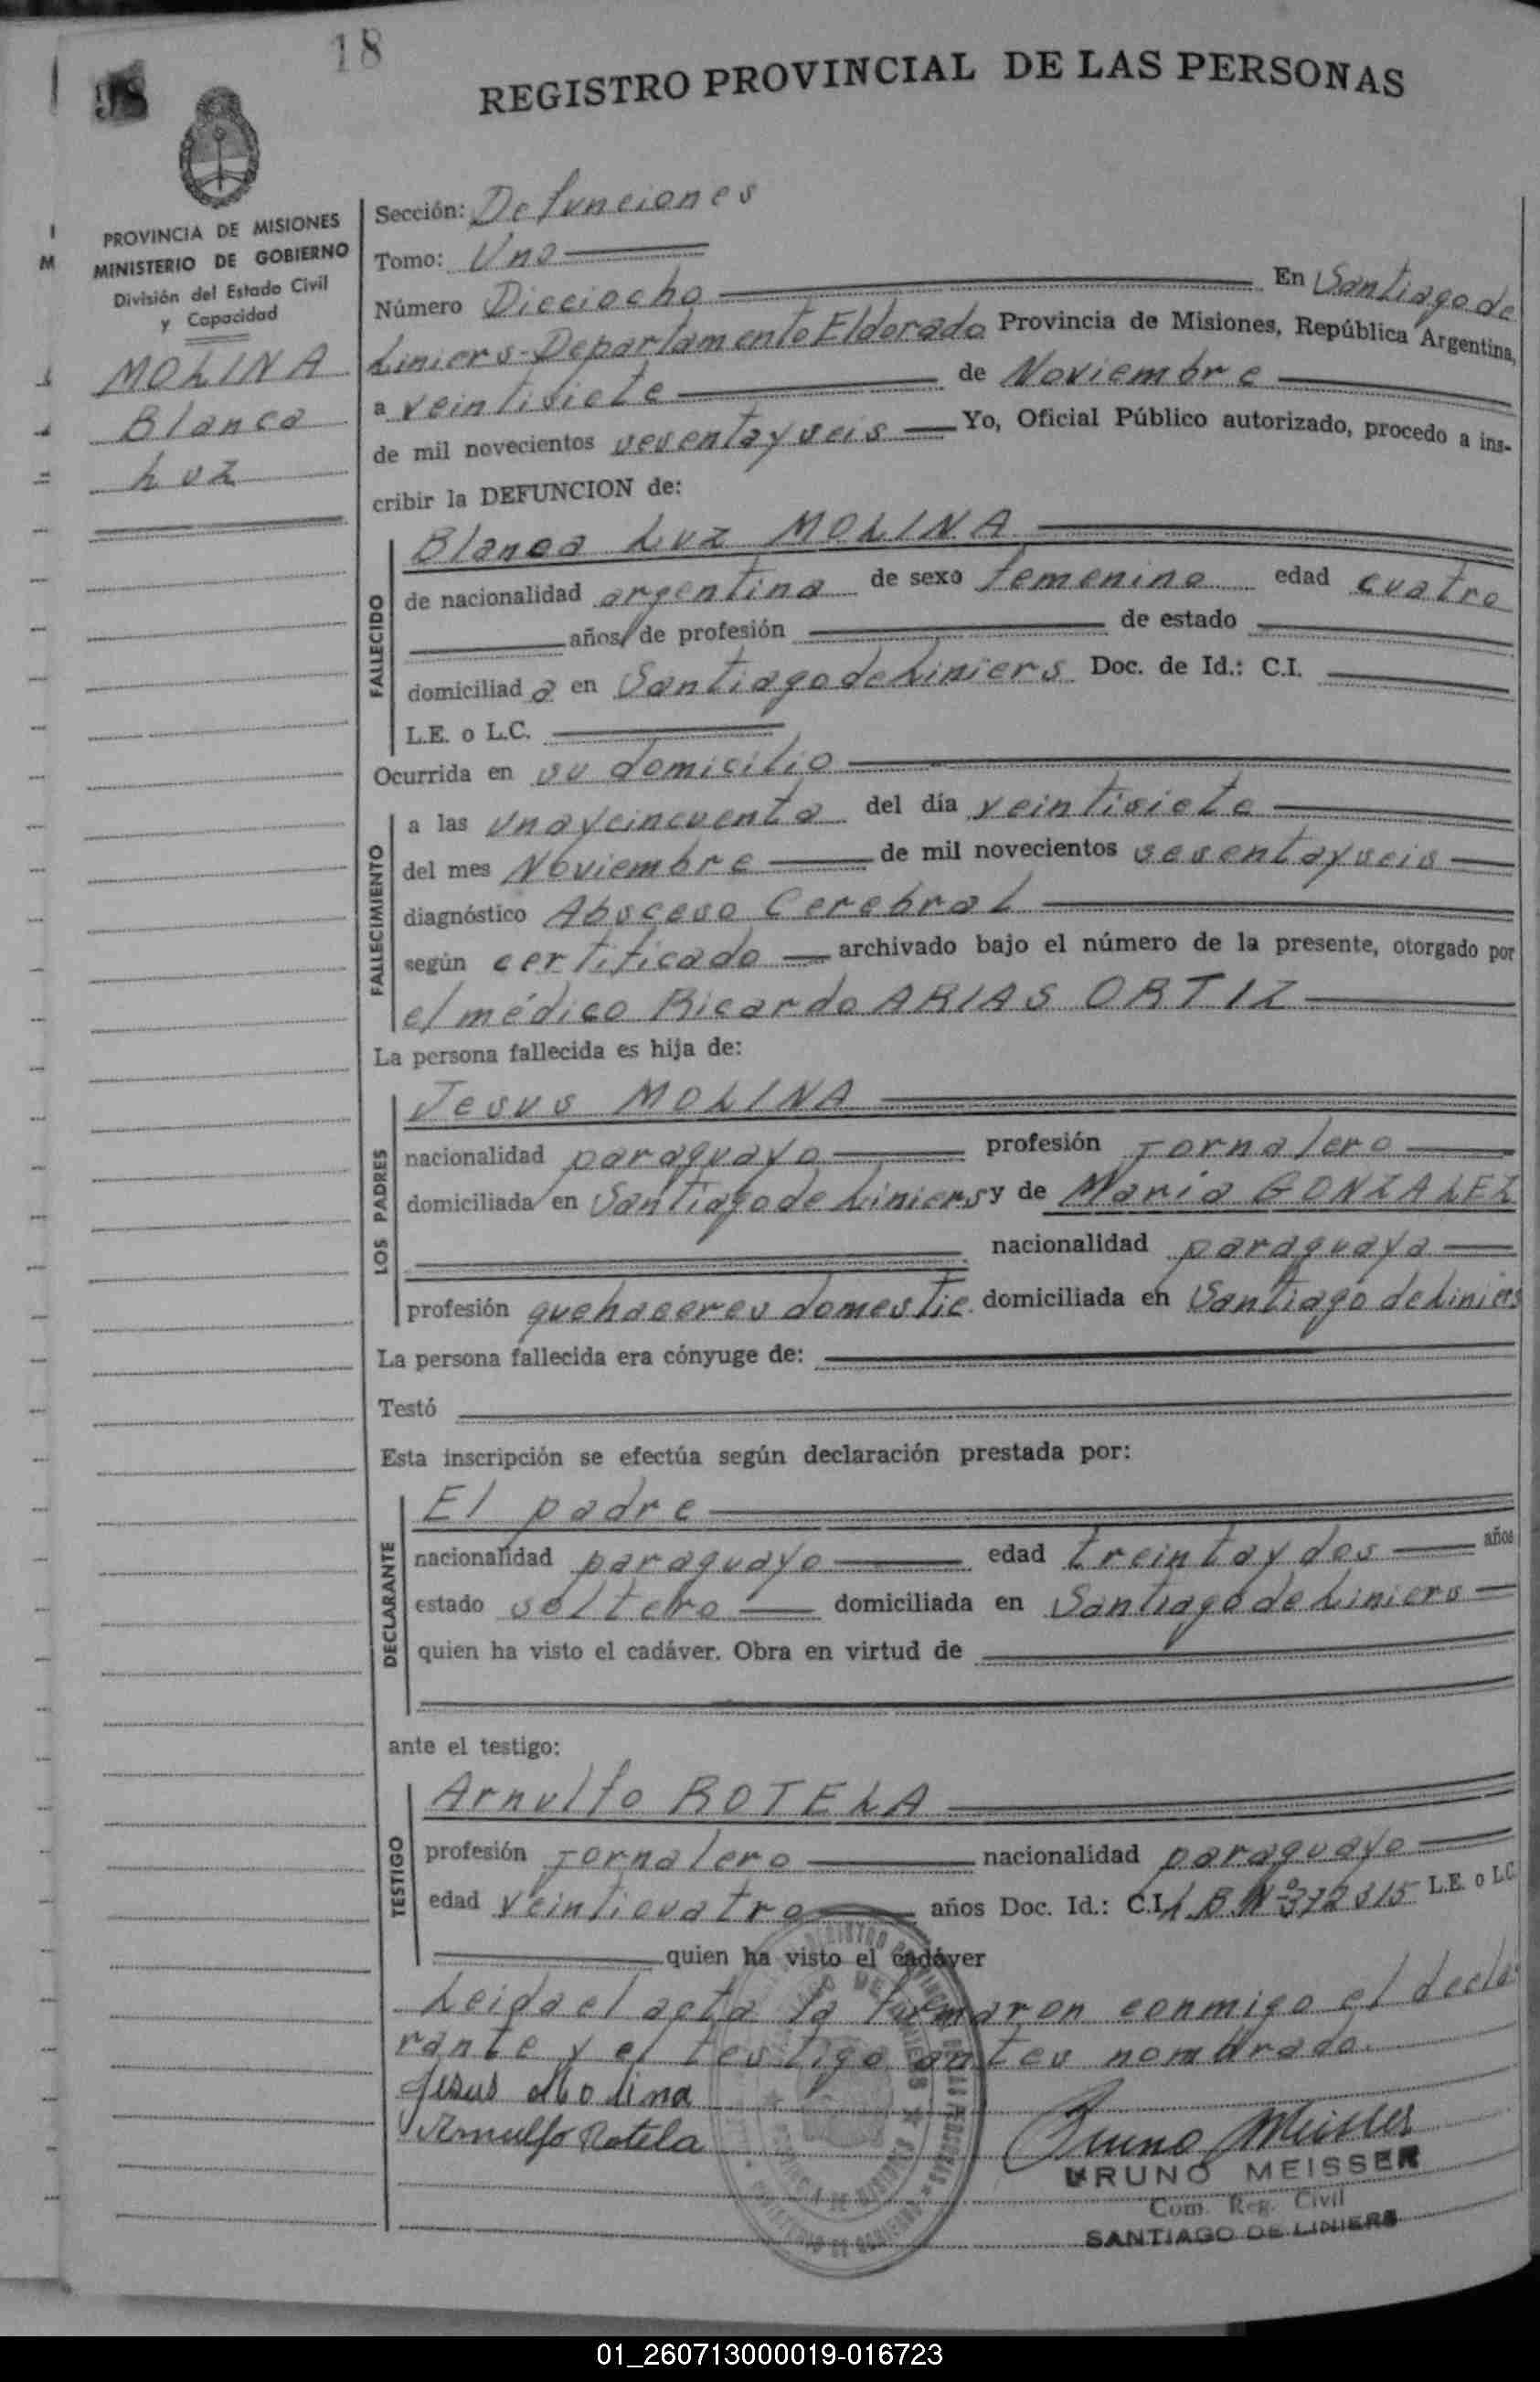 18
98
REGISTRO PROVINCIAL DE LAS PERSONAS
PROVINCIA DE MISIONES
MINISTERIO DE GOBIERNO
División del Estado Civil
y Capacidad
MOLINA
Blanca
Luz
Sección: Defunciones
Tomo: Uno
Número Dieciocho En Santiago de
Liniers-Departamento Eldorado Provincia de Misiones, República Argentina,
a veintisiete de Noviembre
de mil novecientos sesenta y seis Yo, Oficial Público autorizado, procedo a ins-
cribir la DEFUNCION de:
FALLECIDO
Blanca Luz MOLINA
de nacionalidad argentina de sexo femenino edad cuatro
años, de profesión de estado
domiciliad a en Santiago de Liniers Doc. de Id.: C.I.
L.E. o L.C.
Ocurrida en su domicilio
FALLECIMIENTO
a las una y cincuenta del día veintisiete
del mes Noviembre de mil novecientos sesenta y seis
diagnóstico Absceso Cerebral
según certificado archivado bajo el número de la presente, otorgado por
el médico Ricardo ARIAS ORTIZ
La persona fallecida es hija de:
LOS PADRES
Jesus MOLINA
nacionalidad paraguayo profesión Jornalero
domiciliada en Santiago de Liniers y de Maria GONZALEZ
nacionalidad paraguaya
profesión quehaceres domestic. domiciliada en Santiago de Liniers
La persona fallecida era cónyuge de:
Testó
Esta inscripción se efectúa según declaración prestada por:
DECLARANTE
El padre
nacionalidad paraguayo edad treinta y dos años
estado soltero domiciliada en Santiago de Liniers
quien ha visto el cadáver. Obra en virtud de
ante el testigo:
TESTIGO
Arnulfo ROTELA
profesión Jornalero nacionalidad paraguayo
edad veinticuatro años Doc. Id.: C.I. Nº 372315 L.E. o L.C.
quien ha visto el cadáver
Leida el acta la firmaron conmigo el decla-
rante y el testigo antes nombrado.
Jesus Molina
Arnulfo Rotela
Bruno Meisser
BRUNO MEISSER
Com. Reg. Civil
SANTIAGO DE LINIERS
01_260713000019-016723